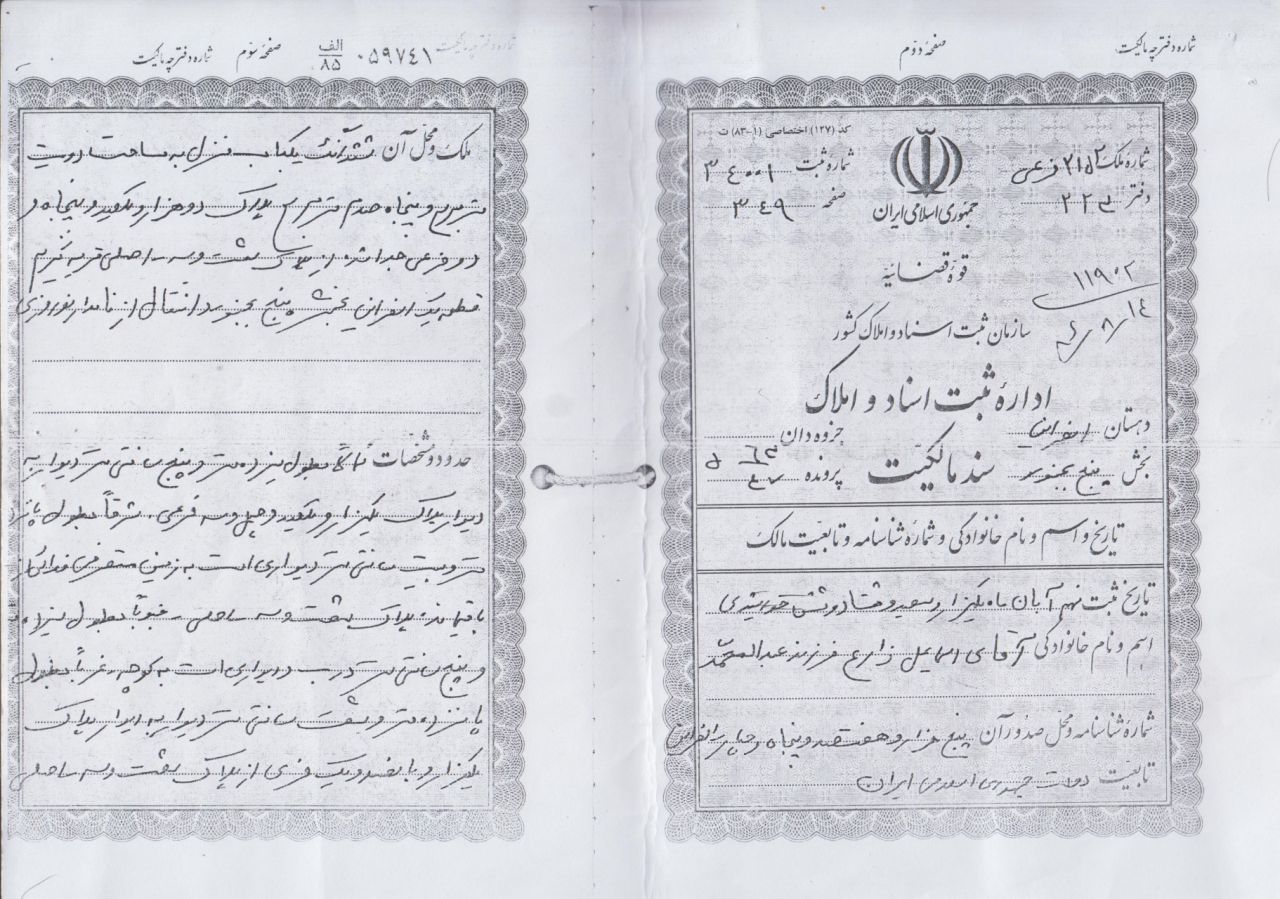 شماره دفترچه مالکیت
صفحهٔ دوّم
کد (۱۲۷) اختصاصی (۱-۸۳) ت
شماره ملک ۲۱۵۲ فرعی
شمارهٔ ثبت ۳۴۰۰۱
دفتر ۲۲۵
صفحه ۳۴۹
جمهوری اسلامی ایران
قوهٔ قضائیه
۱۱۹۰۲
۸/۱۴
سازمان ثبت اسناد و املاک کشور
ادارهٔ ثبت اسناد و املاک
دهستان اسفراین
جزوه‌دان
بخش پنج بجنورد
سند مالکیت
پرونده
تاریخ و اسم و نام خانوادگی و شمارهٔ شناسنامه و تابعیّت مالک
تاریخ ثبت نهم آبان ماه یکهزار و سیصد و هشتاد و شش خورشیدی
اسم و نام خانوادگی آقای اسماعیل زارع فرزند
شمارهٔ شناسنامه و محل صدور آن پنج هزار و هفتصد و پنجاه و چهار اسفراین
تابعیّت دولت جمهوری اسلامی ایران
شماره دفترچه مالکیت
صفحهٔ سوّم
الف
۸۵
۰۵۹۷۴۱
ملک و محلّ آن ششدانگ یکباب منزل به مساحت دویست
متر مربع و پنجاه صدم متر مربع پلاک دو هزار و یکصد و پنجاه و
دو فرعی جدا شده از پلاک هشت و سه - اصلی قریه
قطعه یک اسفراین بخش پنج بجنورد انتقال از نامدار نوروزی
حدود و مشخّصات شمالاً بطول سیزده متر و پنج سانتی متر دیوار به
دیوار پلاک یکهزار و یکصد و چهل و سه فرعی - شرقاً بطول پانزده
متر و بیست سانتی متر دیواری است به زمین
باقیمانده پلاک هشت و سه اصلی - جنوباً بطول سیزده
و پنج سانتی متر درب و دیواری است به کوچه - غرباً بطول
پانزده متر و هشت سانتی متر دیوار به دیوار پلاک
یکهزار و پانصد و یک فرعی از پلاک هشت و سه اصلی